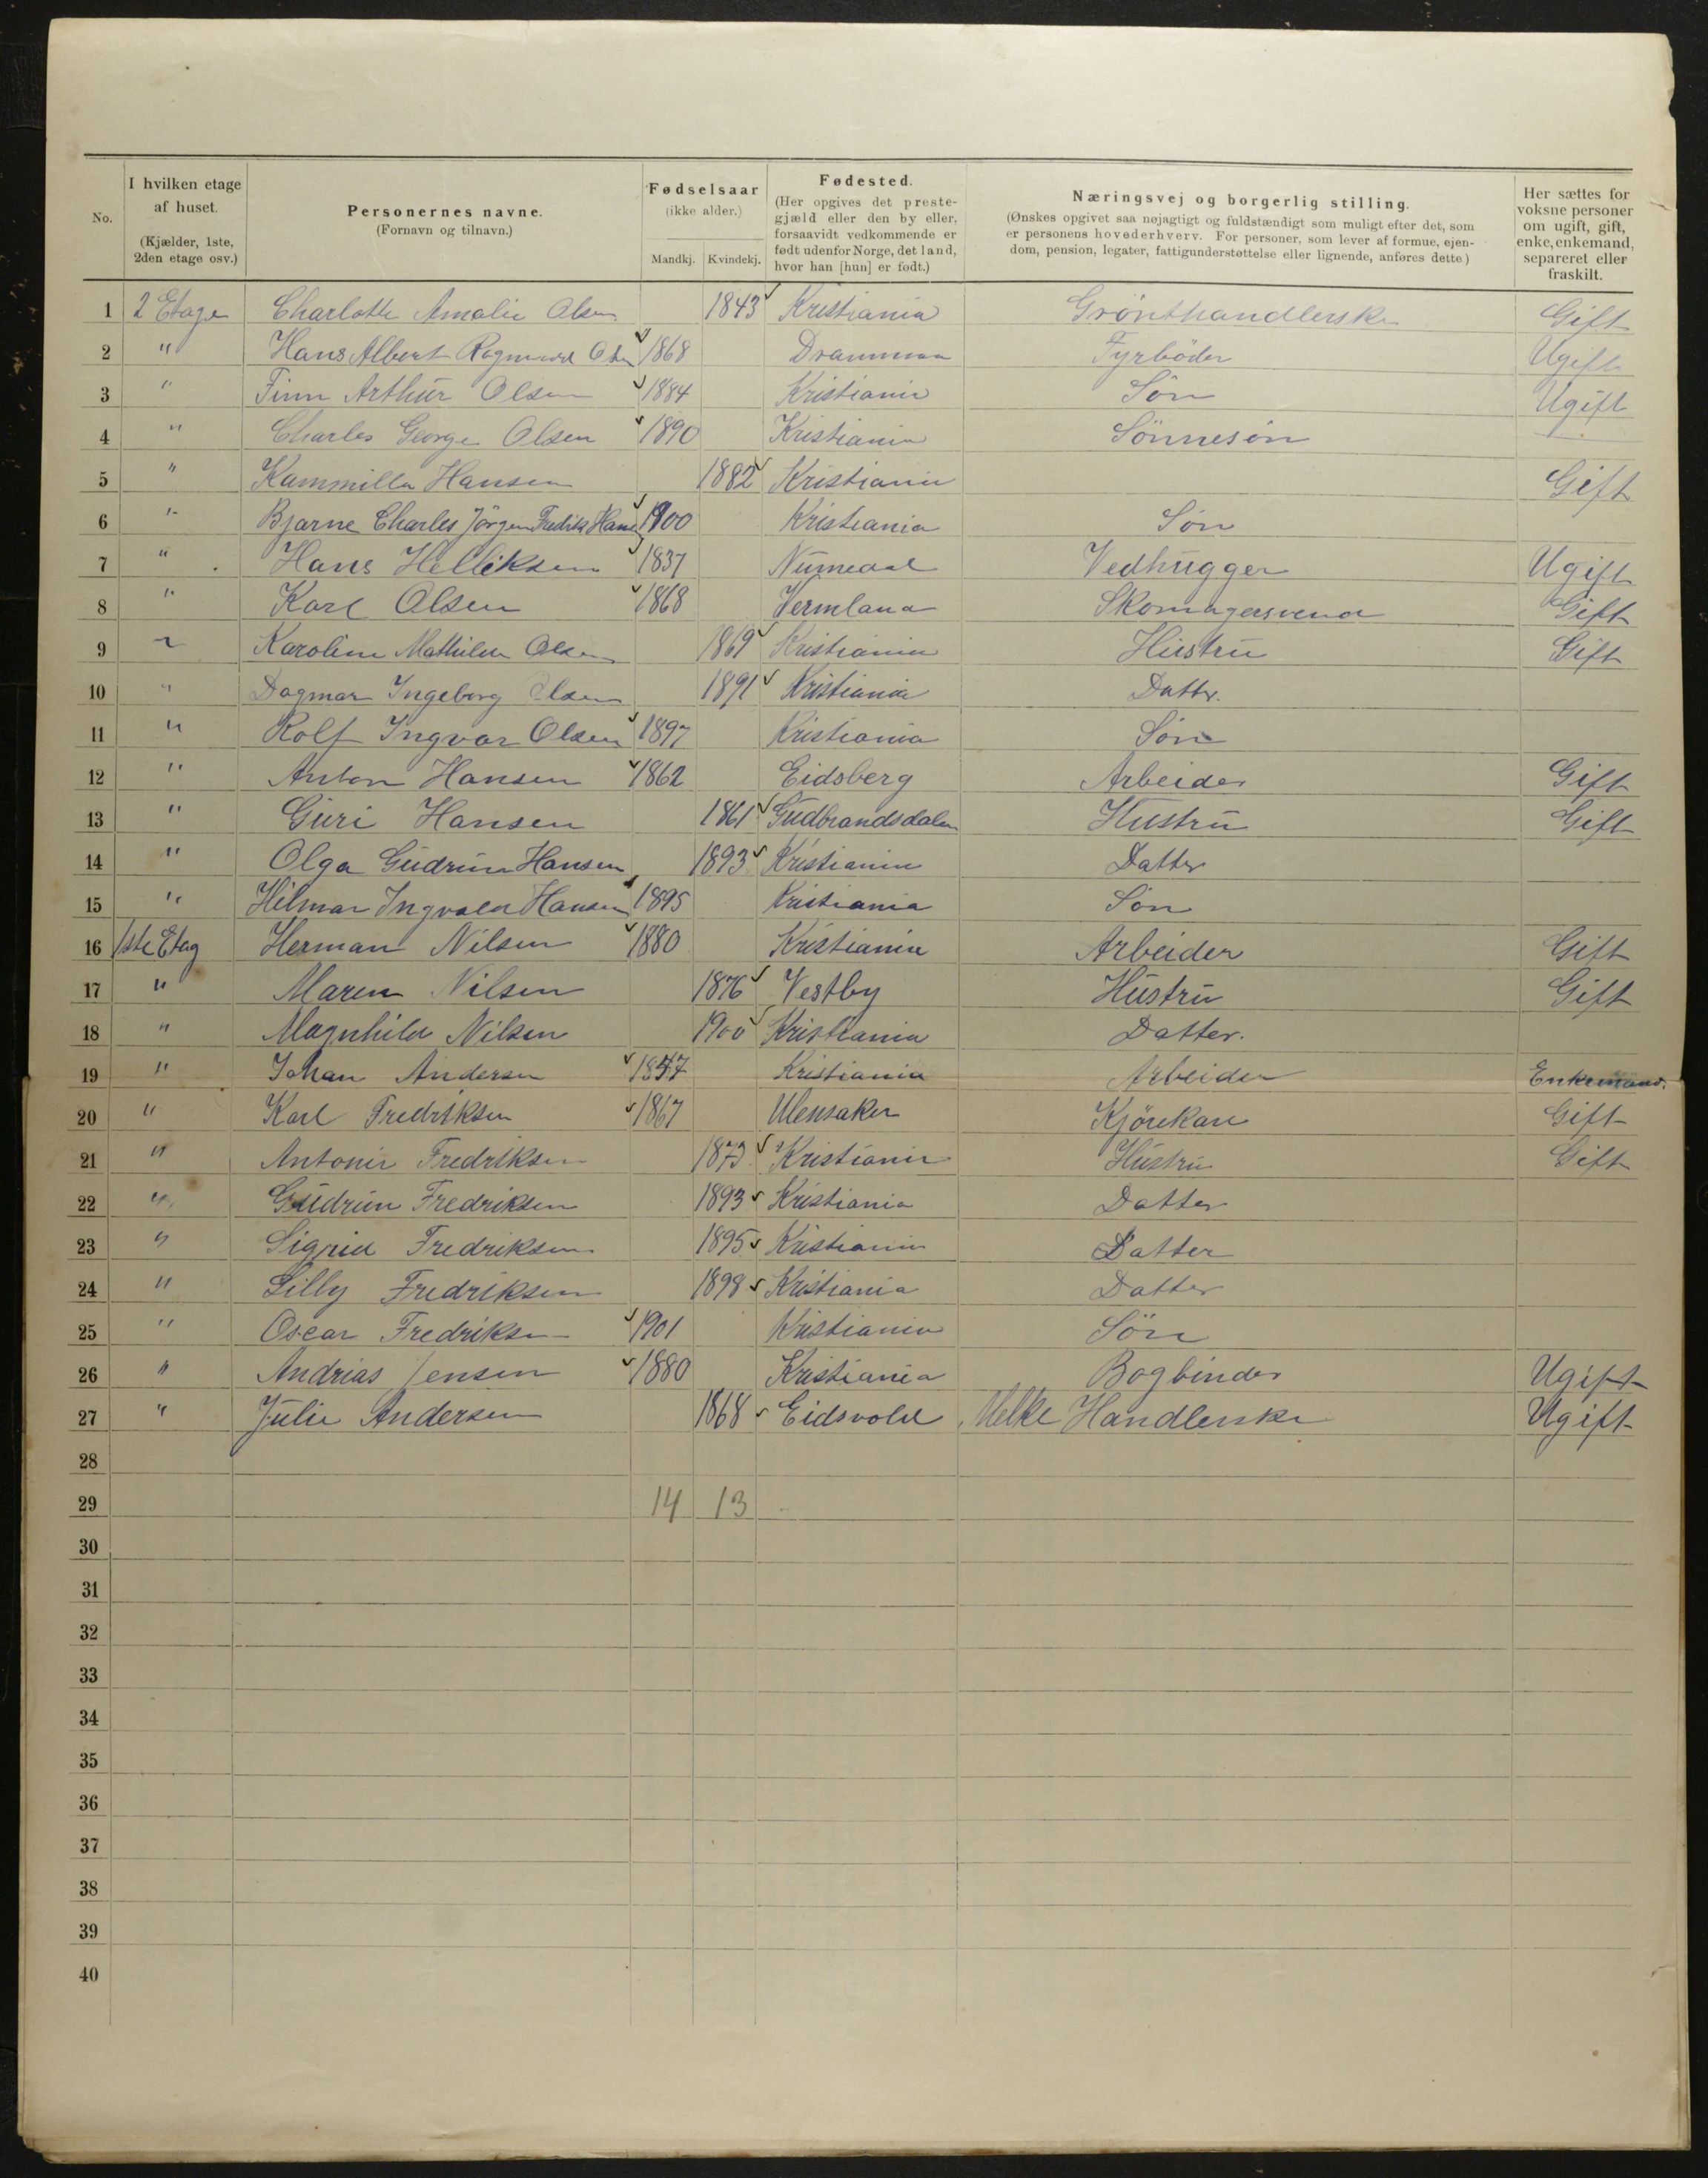 No. | I hvilken etage af huset. (Kjælder, 1ste, 2den etage osv.) | Personernes navne. (Fornavn og tilnavn.) | Fødselsaar (ikke alder.) Mandkj. | Kvindekj. | Fødested. (Her opgives det prestegjæld eller den by eller, forsaavidt vedkommende er født udenfor Norge, det land, hvor han [hun] er født.) | Næringsvej og borgerlig stilling. (Ønskes opgivet saa nøjagtigt og fuldstændigt som muligt efter det, som er personens hovederhverv. For personer, som lever af formue, ejendom, pension, legater, fattigunderstøttelse eller lignende, anføres dette.) | Her sættes for voksne personer om ugift, gift, enke, enkemand, separeret eller fraskilt.
1 2 Etage Charlotte Amalie Olsen 1843 Kristiania Grönthandlerske Gift
2 " Hans Albert Ragnvald Olsen 1868 Drammen Fyrböder Ugift
3 " Finn Arthur Olsen 1884 Kristiania Sön Ugift
4 " Charles George Olsen 1890 Kristiania Sönnesön
5 " Kammilla Hansen 1882 Kristiania Gift
6 " Bjarne Charles Jörgen Fredrik Hansen 1900 Kristiania Sön
7 " Hans Helliksen 1837 Numedal Vedhugger Ugift
8 " Karl Olsen 1868 Vermland Skomagersvend Gift
9 " Karoline Mathilde Olsen 1869 Kristiania Hustru Gift
10 " Dagmar Ingeborg Olsen 1891 Kristiania Datter.
11 " Rolf Ingvar Olsen 1897 Kristiania Sön
12 " Anton Hansen 1862 Eidsberg Arbeider Gift
13 " Guri Hansen 1861 Gudbrandsdalen Hustru Gift
14 " Olga Gudrun Hansen 1893 Kristiania Datter
15 " Hilmar Ingvald Hansen 1895 Kristiania Sön
16 1ste Etag Herman Nilsen 1880 Kristiania Arbeider Gift
17 " Maren Nilsen 1876 Vestby Hustru Gift
18 " Magnhild Nilsen 1900 Kristiania Datter.
19 " Johan Andersen Kristiania Arbeider Enkemand.
20 " Karl Fredriksen 1867 Ulensaker Kjörekarl Gift
21 " Antonie Fredriksen 1873 Kristiania Hustru Gift
22 " Gudrun Fredriksen 1893 Kristiania Datter
23 " Sigrid Fredriksen 1895 Kristiania Datter
24 " Lilly Fredriksen 1898 Kristiania Datter
25 " Oscar Fredriksen 1901 Kristiania Sön
26 " Andrias Jensen 1880 Kristiania Bogbinder Ugift
27 " Julie Andersen 1868 Eidsvold Melke Handlerske Ugift
28
29 14 13
30
31
32
33
34
35
36
37
38
39
40